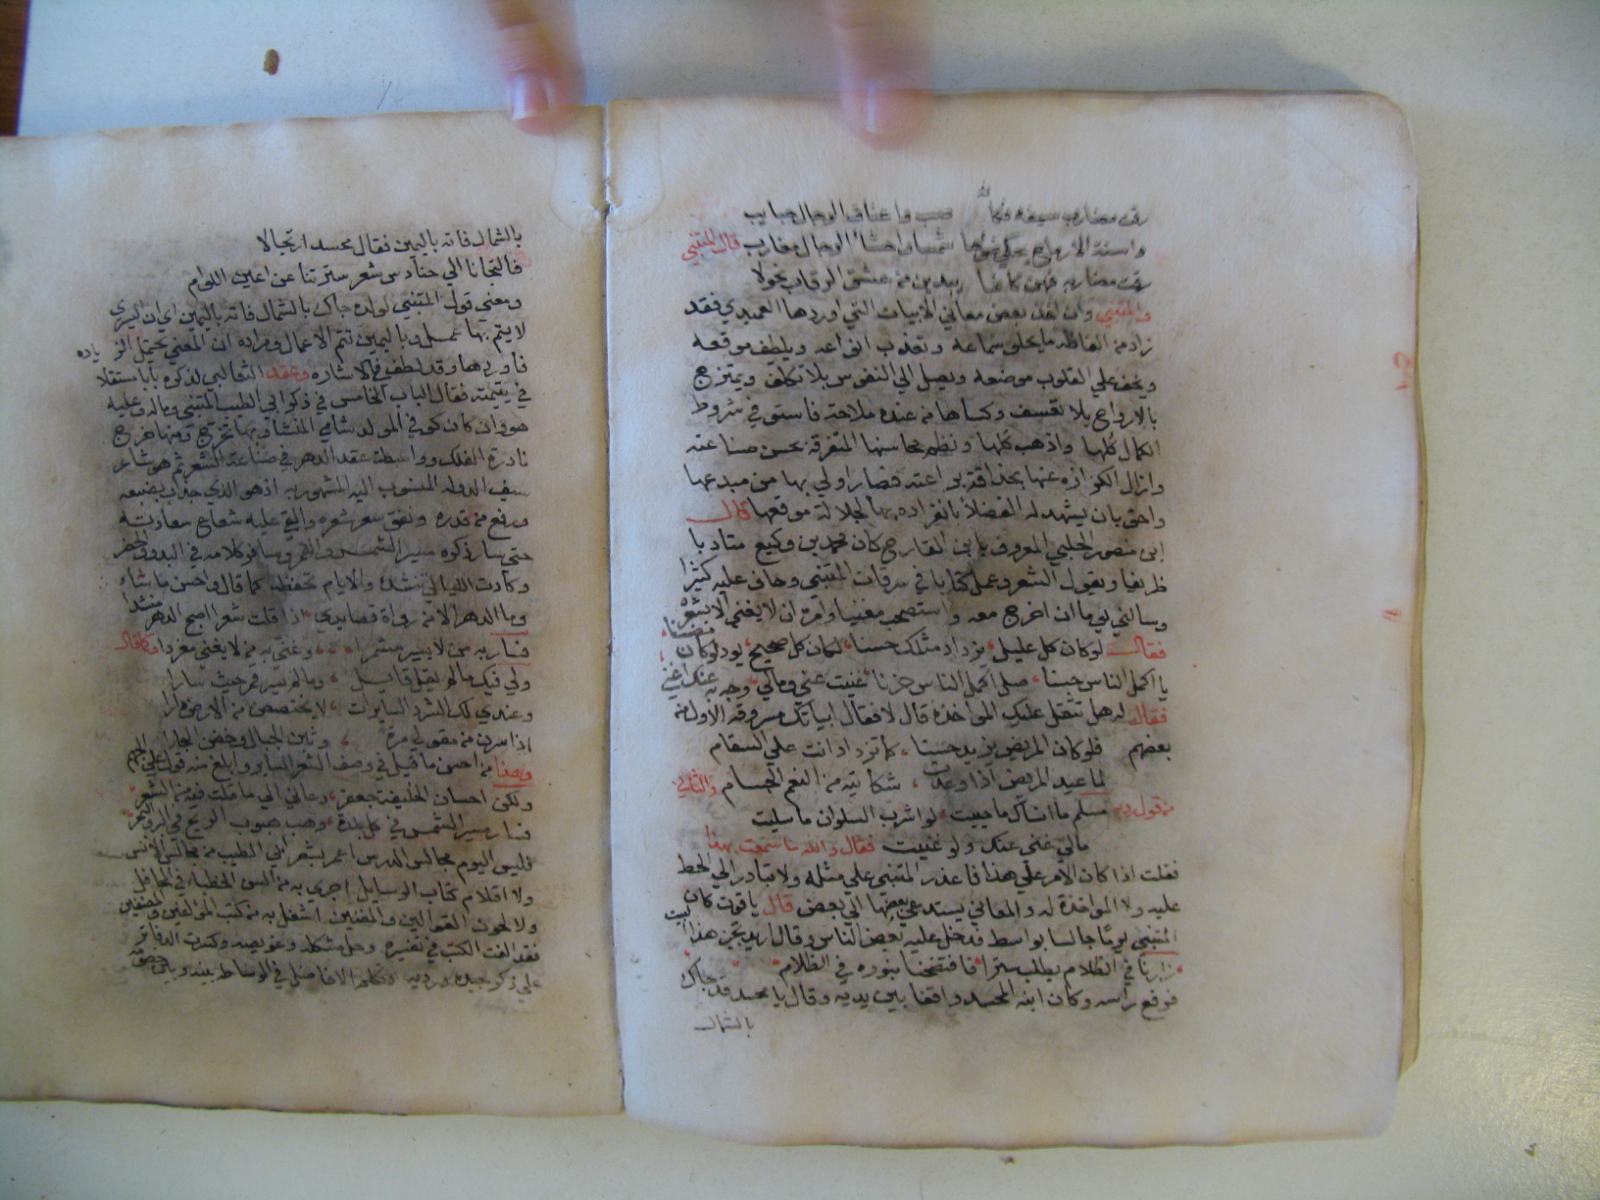 رقت مضارب سيفه فكأنما صب واعناق الرجال حبايب
واسنة الارماح يحكي شمسا واحشاء الرجال مغارب قال المتنبي
رقت مضاربه فهن كانما يبدين من عشق الرقاب نحولا
والمتنبي وان اخذ بعض معاني الابيات التي اوردها العميدي فقد
زاد من الفاظه ما يحلو سماعه وتعذب انواعه ويلطف موقعه
ويخف علي القلوب موضعه ويصل الي النفوس بلا تكلف ويمتزج
بالارواح بلا تعسف وكساها من عنده ملاحة فاستوفي شروط
الكمال كلها واذهب كلها ونظم محاسنها المتفرقة بحسن صناعته
وازال الكزازه عنها بحذاقة براعته فصار اولي بها من مبدعها
واحق بان يشهد له الفضلا بانفراده بها لجلالة موقعها قال
ابن منصور الحلبي المعروف بابن القارح كان محمد بن وكيع متادبا
ظريفا ويقول الشعر وعمل كتابا في سرقات المتنبي وحاف عليه كثيرا
وسالني يوما ان اخرج معه واستصحب مغنيا وامره ان لا يغني الا بشعره
فقال لو كان كل عليل يزداد مثلك حسنا لكان كل صحيح يود لو كان مضنا
يا اكمل الناس حسنا صل اكمل الناس حزنا غنيت عني ومالي وجه به عنك اغني
فقال له هل تثقل عليك المواخذة قال لا فقال ابياتك مسروقة الاول من
بعضهم فلو كان المريض يزيد حسنا كما تزداد انت علي السقام
لما عيد المريض اذا وعدت شكايته من النعم الجسام والثاني
من قول روبه مسلم ما انساك ما حييت لو اشرب السلوان ما سليت
مالي غني عنك ولو غنيت فقال والله ما سمعت بهذا
فقلت اذا كان الامر علي هذا فاعذر المتنبي علي مثله ولا تبادر الي الحط
عليه ولا المواخذة له والمعاني يستدعي بعضها الي بعض قال ياقوت كان
المتنبي يوما جالسا بواسط فدخل عليه بعض الناس وقال اريد تجيز هذا البيت
زارنا في الظلام يطلب سترا فافتضحنا بنوره في الظلام
فرفع راسه وكان ابنه المحسد واقفا بين يديه وقال يا محسد قد جاك
بالشمال
بالشمال فاته باليمين فقال محسد ارتجالا
فالتجانا الي حنادس شعر سترتنا عن اعين اللوام
ومعني قول المتنبي لولده جاك بالشمال فاته باليمين اي ان اليسري
لا يتم بها عمل وباليمين تتم الاعمال ومراده ان المعني يحتمل الزياده
فاوردها وقد لطف في الاشاره وعقد الثعالبي لذكره بابا مستقلا
في يتيمته فقال الباب الخامس في ذكر ابي الطيب المتنبي وماله وعليه
هو وان كان كوفي المولد شامي المنشا وبها تخرج ومنها خرج
نادرة الفلك وواسطة عقد الدهر في صناعة الشعر ثم هو شاعر
سيف الدوله المنسوب اليه المشهور به اذ هو الذي جذب بضبعه
ورفع من قدره ونفق سعر شعره والقي عليه شعاع سعادته
حتي سار ذكره مسير الشمس والقمر وسافر كلامه في البدو والحضر
وكادت الليالي تنشده والايام تحفظه كما قال واحسن ما شاء
وما الدهر الا من رواة قصايدي اذا قلت شعرا اصبح الدهر منشدا
فسار به من لا يسير مشمرا وغني به من لا يغني مغردا وكما قال
ولي فيك ما لم يقل قايل وما لم يسر قمر حيث سارا
وعندي لك الشرد السايرات لا يختصصن من الارض دارا
اذا سرن من مقولي مرة وثبن الجبال وخضن البحارا
وهذا من احسن ما قيل في وصف الشعر الساير وابلغ منه قول علي بن الجهم
ولكن احسان الخليفة جعفر دعاني الي ما قلت فيه من الشعر
فسار مسير الشمس في كل بلدة وهب هبوب الريح في البر والبحر
فليس اليوم مجالس الدرس اعمر بشعر ابي الطيب من مجالس الانس
ولا اقلام كتاب الرسايل اجري به من السن الخطباء في المحافل
ولا لحون القوالين والمغنين اشغل به من كتب المؤلفين والمصنفين
فقد الفت الكتب في تفسيره وحل مشكله وعويصه وكثرت الدفاتر
علي ذكر جيده ورديه وتكلم الافاضل في الوساطه بينه وبين خصومه